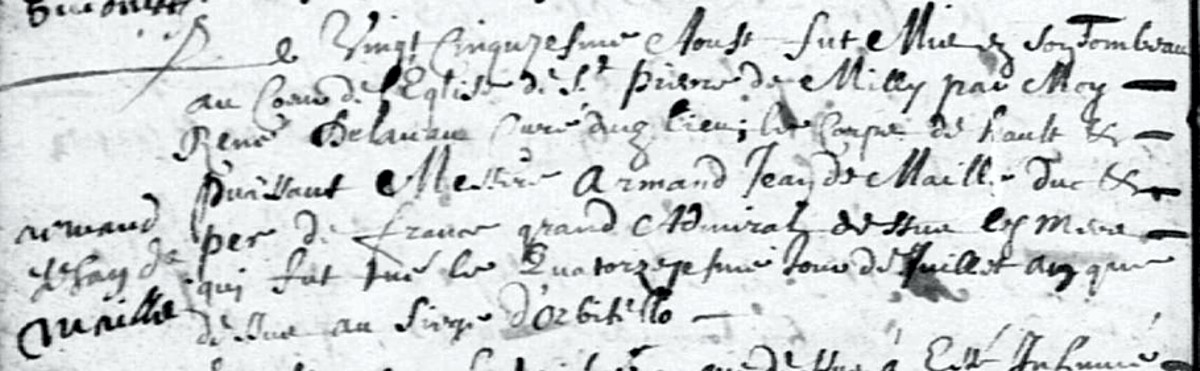 Le Vingt Cinquzesme Aoust fut Mis en son Tombeau
au Coeur de l'Eglise de St Pierre de Milly par Moy
René Delanau Curé dud lieu; le Corps de hault &
puissant Messire Armand Jean de Maillé Duc &
per de france grand Admiral dessus les Mers
qui fut tué le Quatorzyesme Jour de Juillet an que
dessus au Siege d'Orbitello
Armand
Jehan de
Maillé